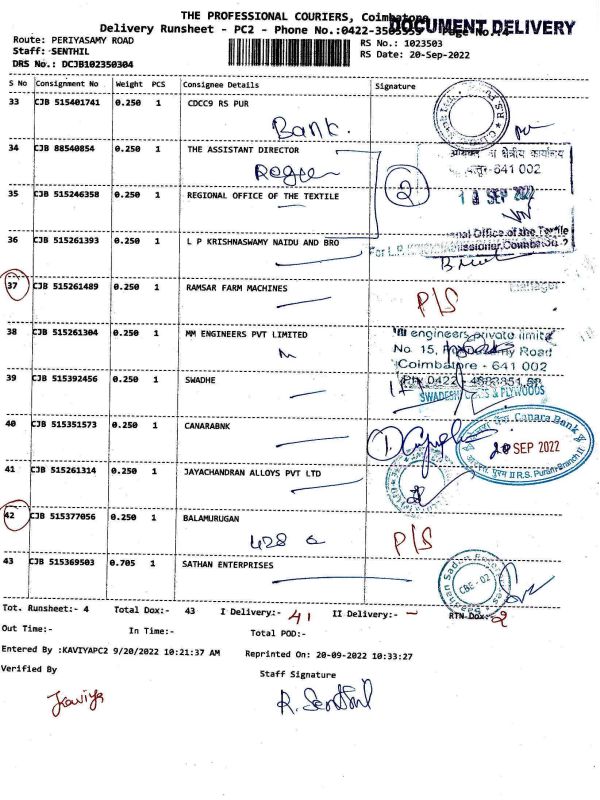 THE PROFESSIONAL COURIERS, Coimbatore
DOCUMENT DELIVERY
Delivery Runsheet - PC2 - Phone No.:0422-3505555 Page No.:4
Route: PERIYASAMY ROAD
RS No.: 1023503
Staff: SENTHIL
RS Date: 20-Sep-2022
DRS No.: DCJB102350304
S No Consignment No Weight PCS Consignee Details Signature
33 CJB 515401741 0.250 1 CDCC9 RS PUR
Bank.
34 CJB 88540854 0.250 1 THE ASSISTANT DIRECTOR
क्षेत्रीय कार्यालय
641 002
2
35 CJB 515246358 0.250 1 REGIONAL OFFICE OF THE TEXTILE
SEP 2022
Office of the Textile
36 CJB 515261393 0.250 1 L P KRISHNASWAMY NAIDU AND BRO
Commissioner, Coimbatore-2
Manager
37 CJB 515261489 0.250 1 RAMSAR FARM MACHINES
P/S
38 CJB 515261304 0.250 1 MM ENGINEERS PVT LIMITED
engineers private limited
No. 15, Road
Coimbatore - 641 002
39 CJB 515392456 0.250 1 SWADHE
& PLYWOODS
40 CJB 515351573 0.250 1 CANARABNK
1
Canara Bank
20 SEP 2022
II R.S. Puram Branch II
41 CJB 515261314 0.250 1 JAYACHANDRAN ALLOYS PVT LTD
42 CJB 515377056 0.250 1 BALAMURUGAN
428
P/S
43 CJB 515369503 0.705 1 SATHAN ENTERPRISES
CBE - 02
Tot. Runsheet:- 4 Total Dox:- 43 I Delivery:- 41 II Delivery:- – RTN Dox:- 2
Out Time:- In Time:- Total POD:-
Entered By :KAVIYAPC2 9/20/2022 10:21:37 AM Reprinted On: 20-09-2022 10:33:27
Verified By Staff Signature
Kaviya R. Senthil